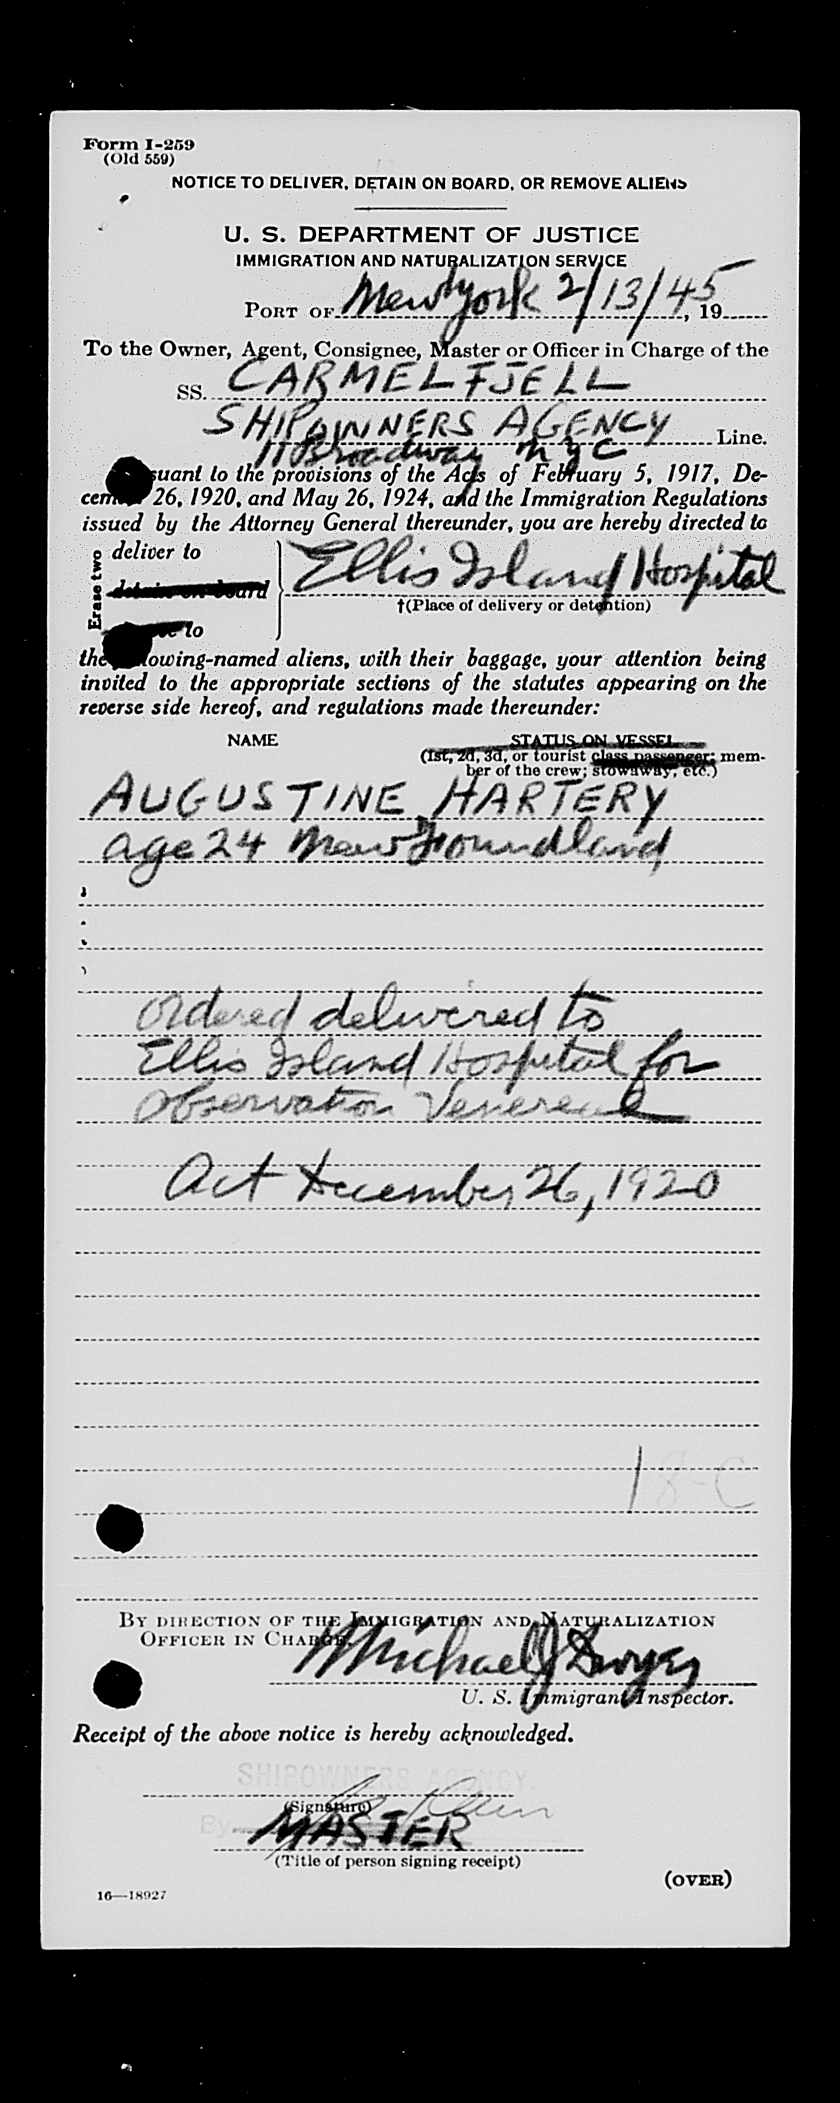 Form I-259
(Old 559)
NOTICE TO DELIVER, DETAIN ON BOARD, OR REMOVE ALIENS
U. S. DEPARTMENT OF JUSTICE
IMMIGRATION AND NATURALIZATION SERVICE
PORT OF New York 2/13/45, 19
To the Owner, Agent, Consignee, Master or Officer in Charge of the
SS. CARMELFJELL
SHIPOWNERS AGENCY Line.
11 Broadway NYC
suant to the provisions of the Acts of February 5, 1917, De-
cem 26, 1920, and May 26, 1924, and the Immigration Regulations
issued by the Attorney General thereunder, you are hereby directed to
Erase two
deliver to
detain on board
to
Ellis Island Hospital
†(Place of delivery or detention)
the lowing-named aliens, with their baggage, your attention being
invited to the appropriate sections of the statutes appearing on the
reverse side hereof, and regulations made thereunder:
NAME STATUS ON VESSEL
(1st, 2d, 3d, or tourist class passenger; mem-
ber of the crew; stowaway, etc.)
AUGUSTINE HARTERY
age 24 Newfoundland
Ordered delivered to
Ellis Island Hospital for
Observation Venereal
Act December 26, 1920
18-C
BY DIRECTION OF THE IMMIGRATION AND NATURALIZATION
OFFICER IN CHARGE.
Michael J Dwyer
U. S. Immigrant Inspector.
Receipt of the above notice is hereby acknowledged.
SHIPOWNERS AGENCY.
(Signature)
By
MASTER
(Title of person signing receipt)
(OVER)
16—18927